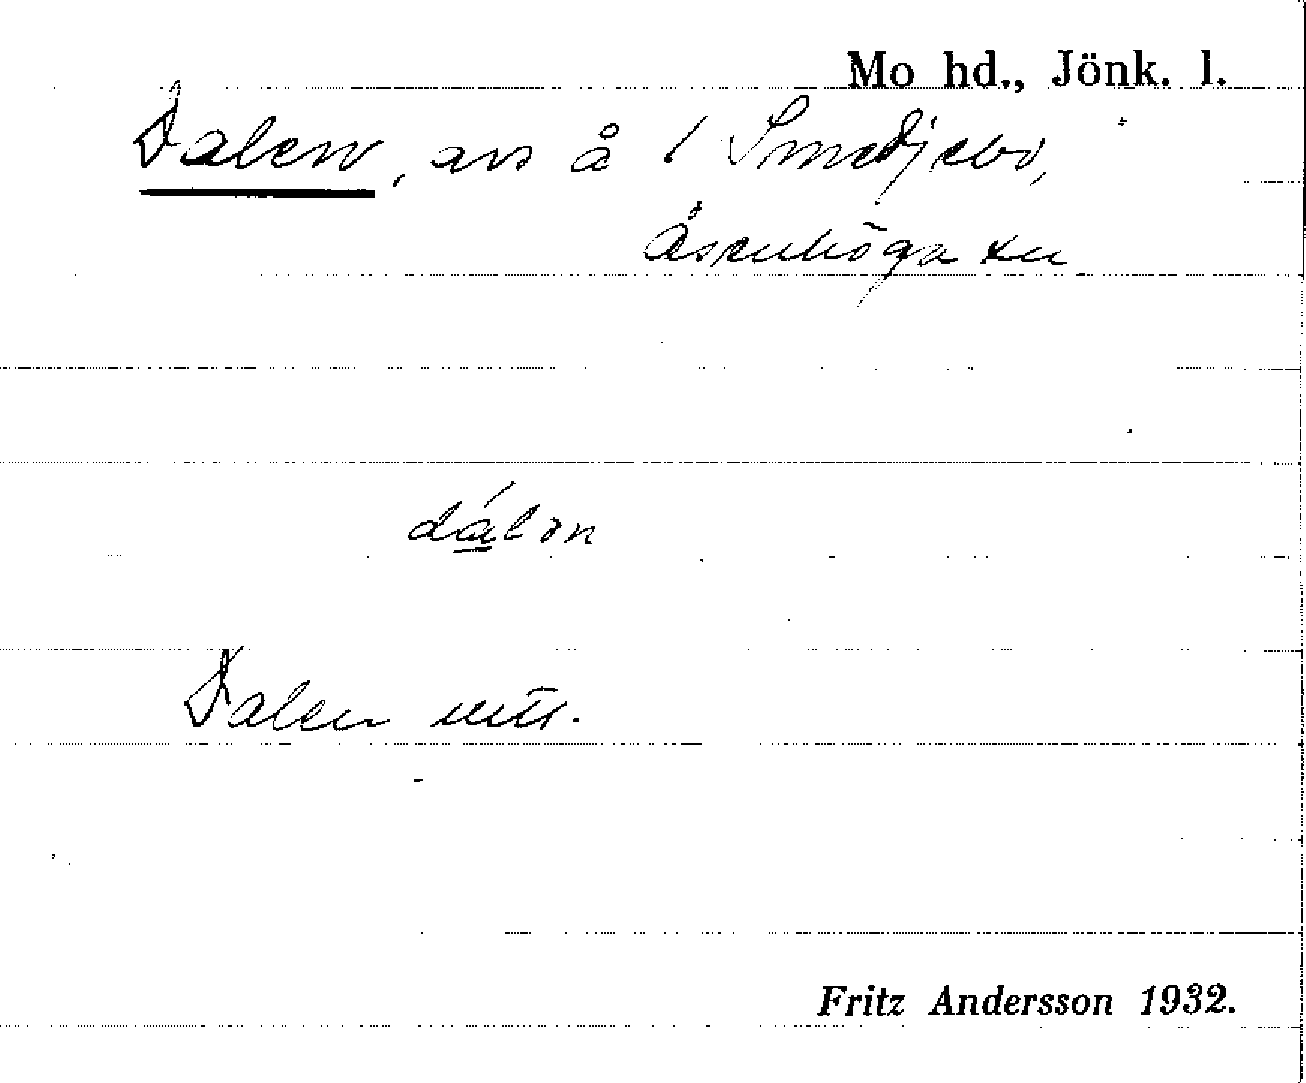 Mo hd., Jönk. l.
Dalen, avs å 1 Smedjebo,
Åsenhöga sn
dálən
Dalen mtl.
Fritz Andersson 1932.